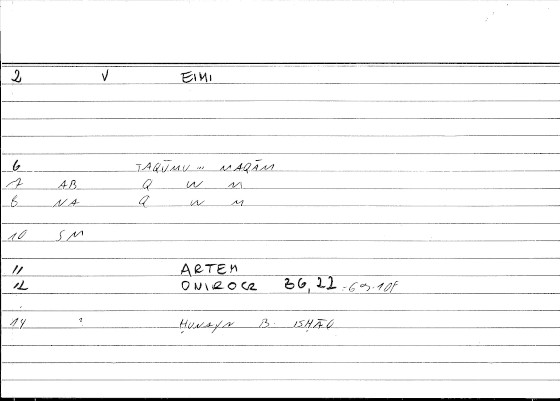 2 V EIMI
6 TAQŪMU ... MAQĀM
7 AB Q W M
8 NA Q W M
10 SM
11 ARTEM
12 ONIROCR 36,22 = 69.10f
14 Ḥunayn B. ISḤĀQ